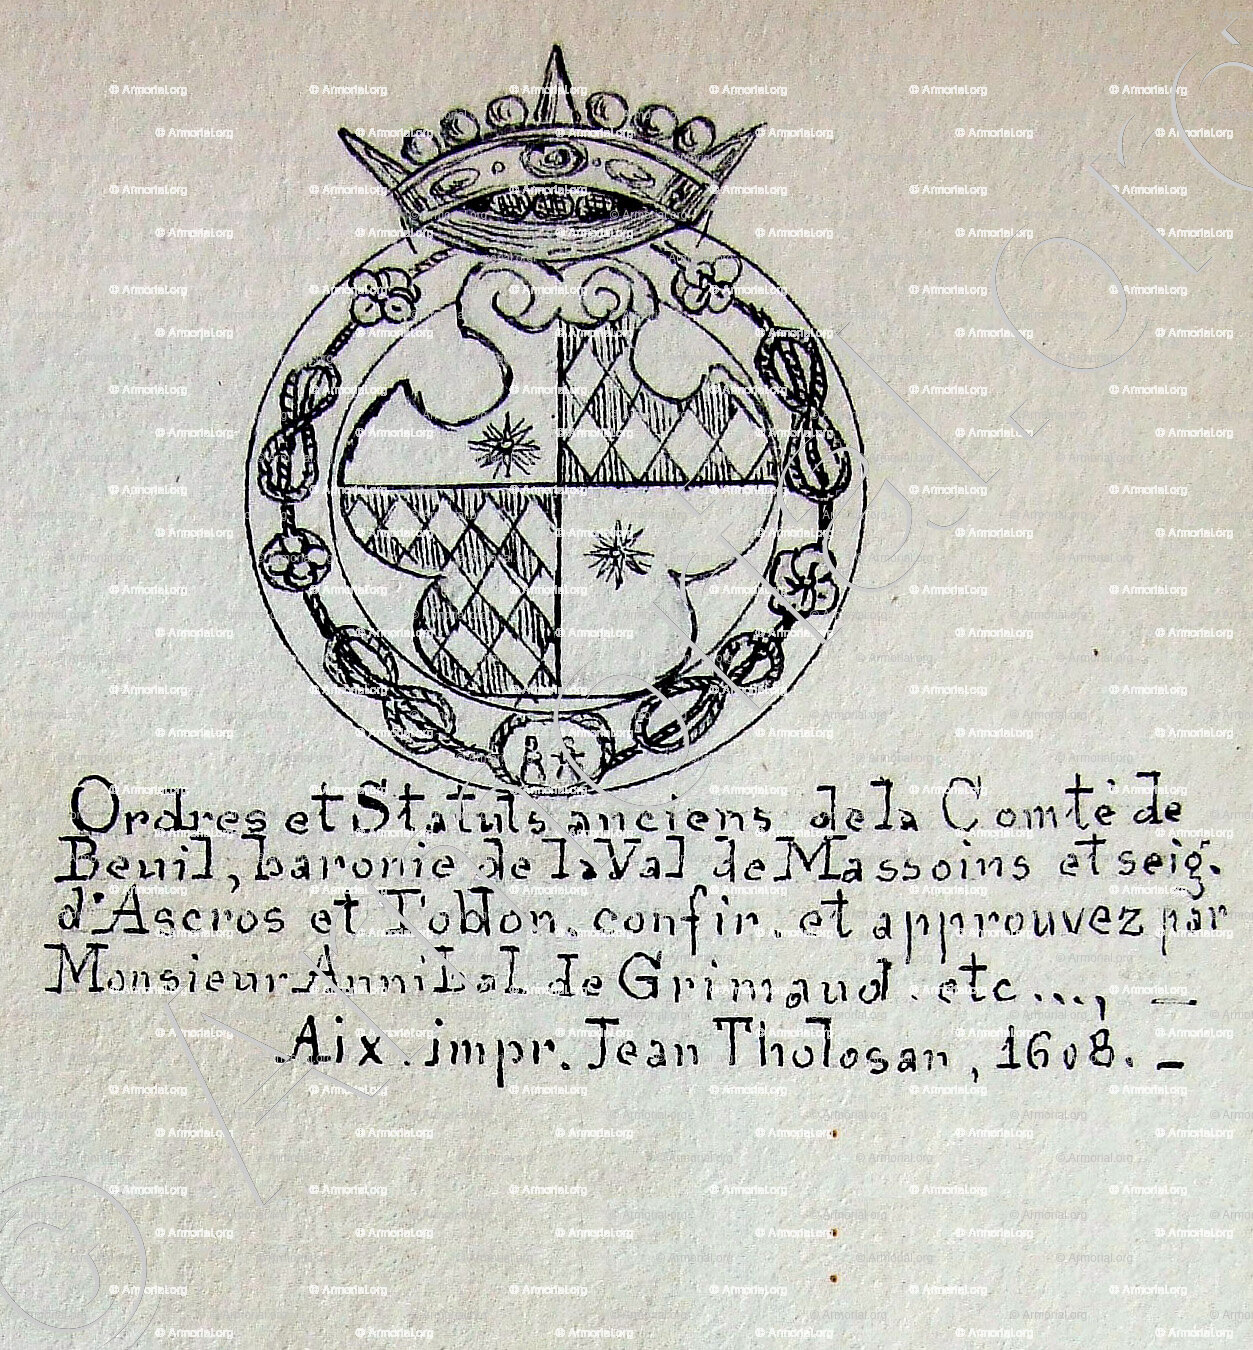 Ordres et Statuts anciens de la Comté de
Beuil, baronie de la Val de Massoins et seig.
d'Ascros et Toblon, confir. et approuvez par
Monsieur Annibal de Grimaud. etc..., _
Aix. impr. Jean Tholosan, 1608. _
© Armorial.org